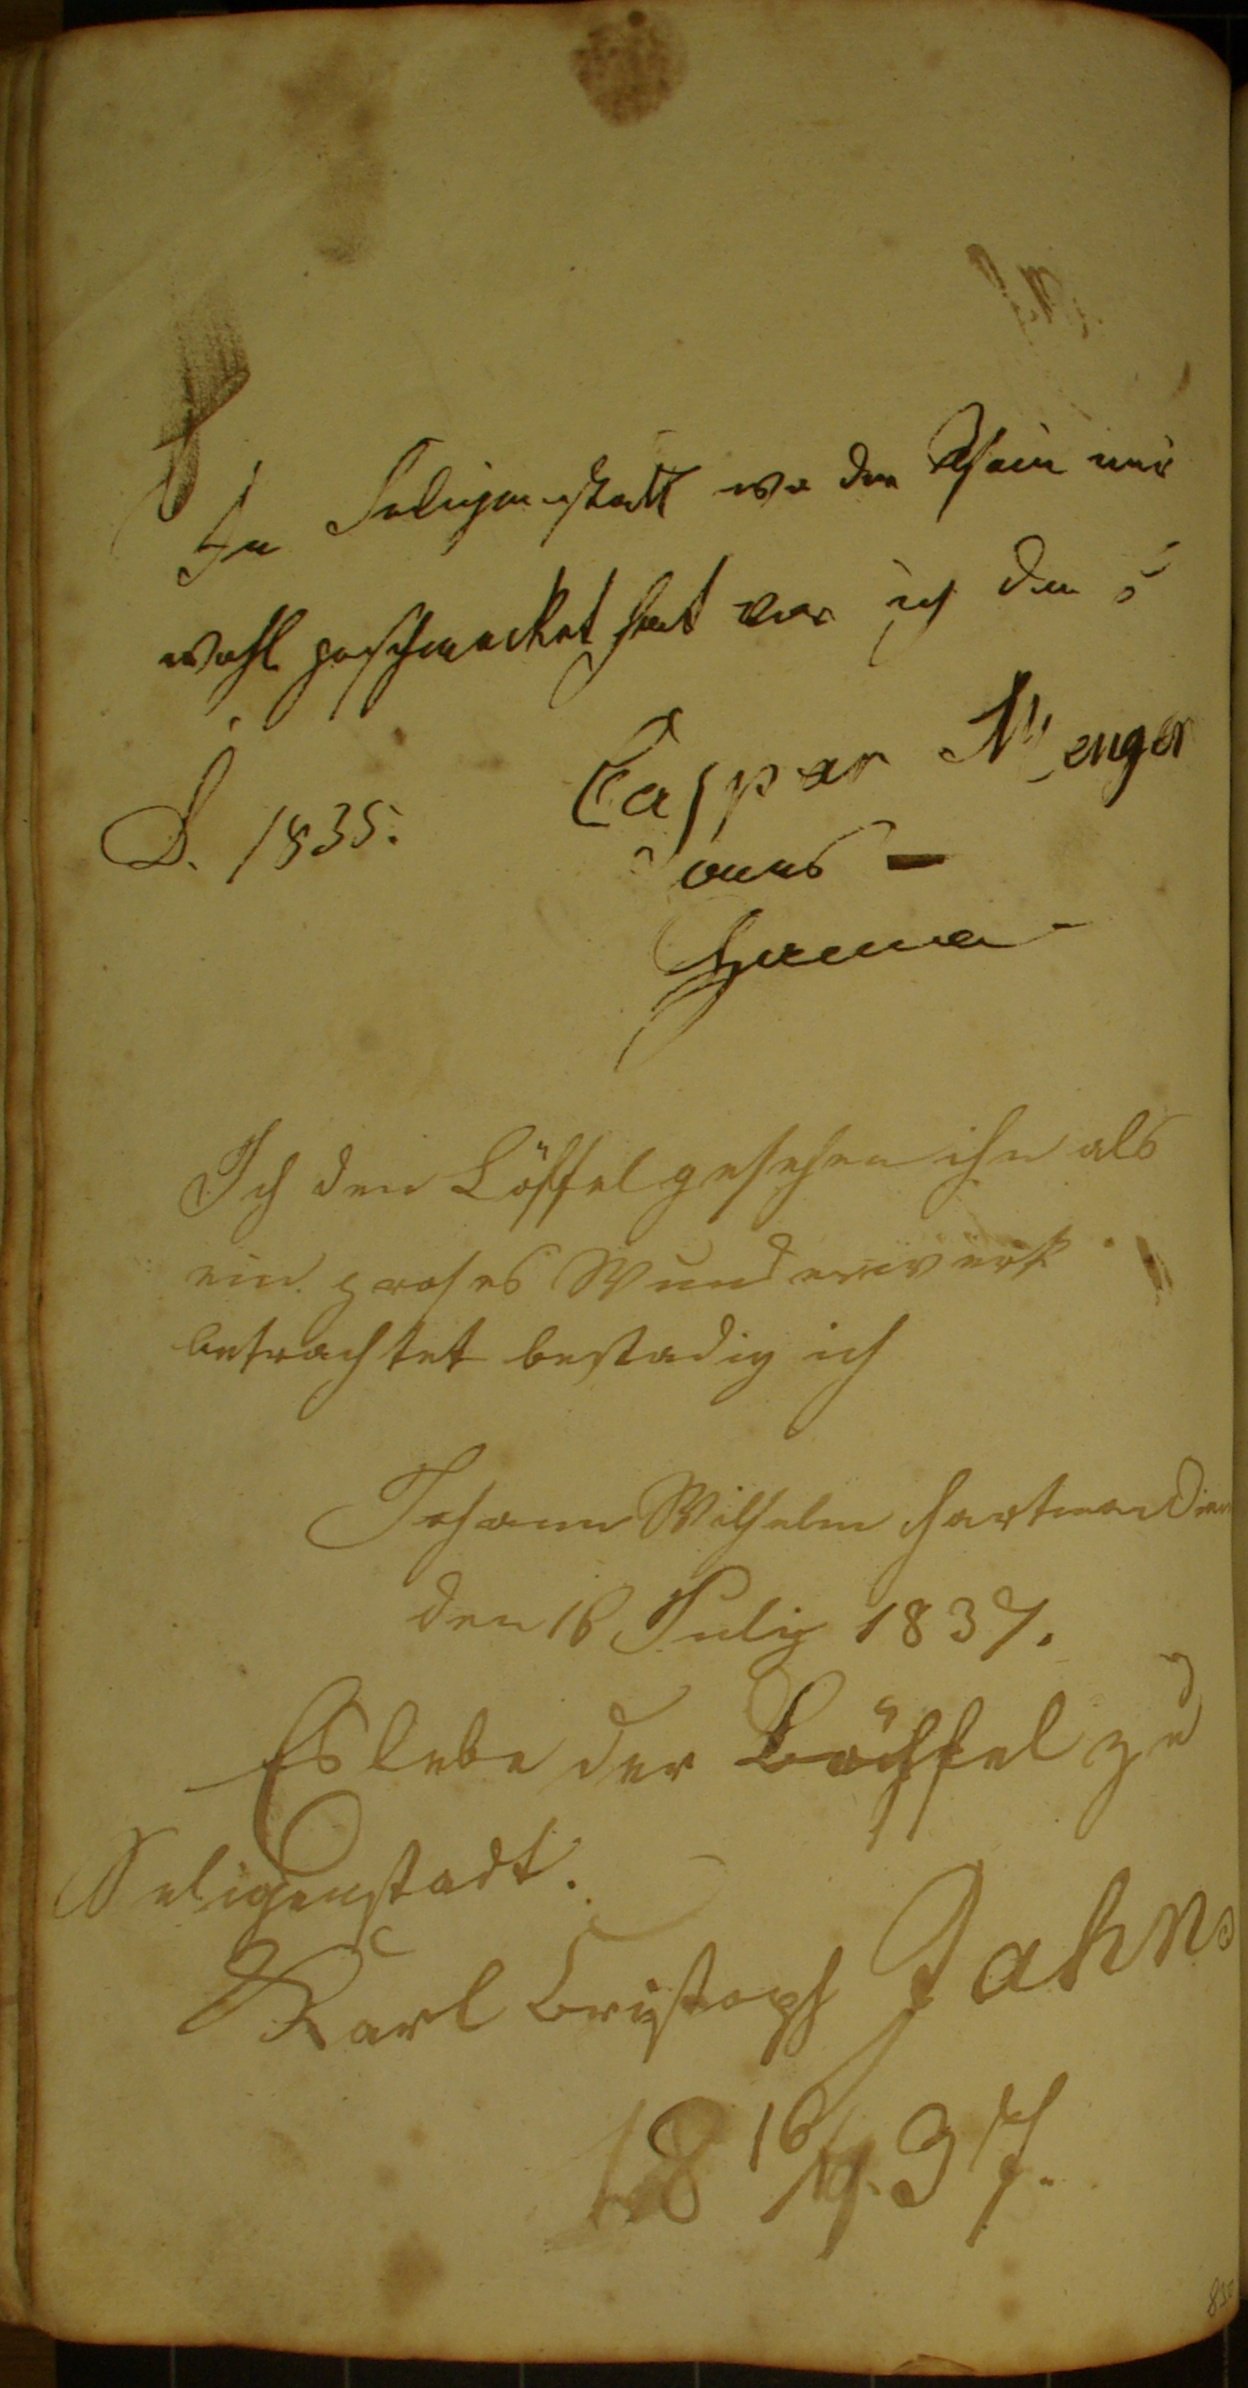 In Seligenstatt wo der Rhein mir
wohl geschmecket hat war ich den
S. 1835.
Caspar Menger
aus -
Hanna
Ich den Löffel gesehen ihn als
ein groses Wunderwerk
betrachtet bestadig ich
Johann Wilhelm
den 16 Julig 1837.
Es lebe der Löffel zu
Seligenstadt.
Karl Cristoph Jahn.
18 16/7. 37.